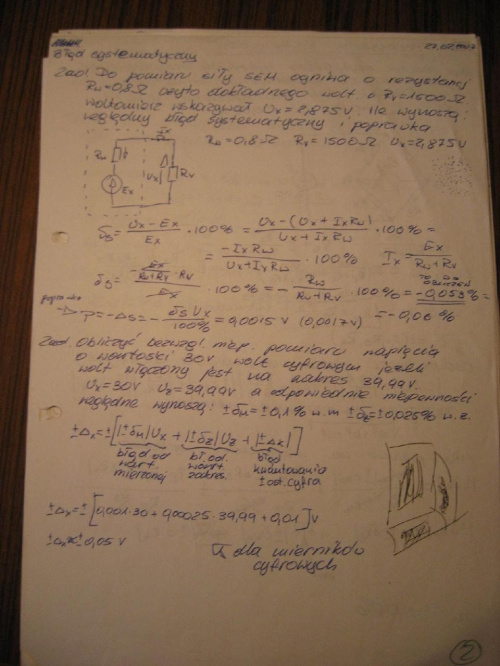 27.02.2007
Błąd systematyczny
Zad1. Do pomiaru siły SEM ogniwa o rezystancji
Rw=0,8Ω użyto dokładnego wolt. o Rv=1500Ω
woltomierz wskazywał Ux=2,875V. Ile wynoszą:
względny błąd systematyczny i poprawka
Rw=0,8Ω Rv=1500Ω Ux=2,875V
Rw
Ix
Ux
Rv
Ex
δs = (Ux - Ex)/Ex · 100% = (Ux - (Ux + IxRw))/(Ux + IxRw) · 100% =
= (-IxRw)/(Ux + IxRw) · 100% Ix = Ex/(Rw+Rv)
δs = · 100% = - Rw/(Rw+Rv) · 100% = -0,053% =
poprawka = -0,06%
→ p = -Δs = - (δs Ux)/100% = 0,0015 V (0,0017V)
Zad. Obliczyć bezwzgl. niep. pomiaru napięcia
o wartości 30V wolt. cyfrowym jeżeli
wolt włączony jest na zakres 39,99V.
Ux=30V Uz=39,99V a odpowiednie niepewności
względne wynoszą: ±δm=±0,1% w.m ±δz=±0,025% w.z.
±Δx=±[|±δm|Ux + |±δz|Uz + |±Δk|]
błąd od wart. mierzonej
błąd od wart. zakres.
błąd kwantowania ± ost. cyfra
±Δx=±[0,001·30+0,00025·39,99+0,01]V
±Δx≈±0,05 V
dla mierników
cyfrowych
2